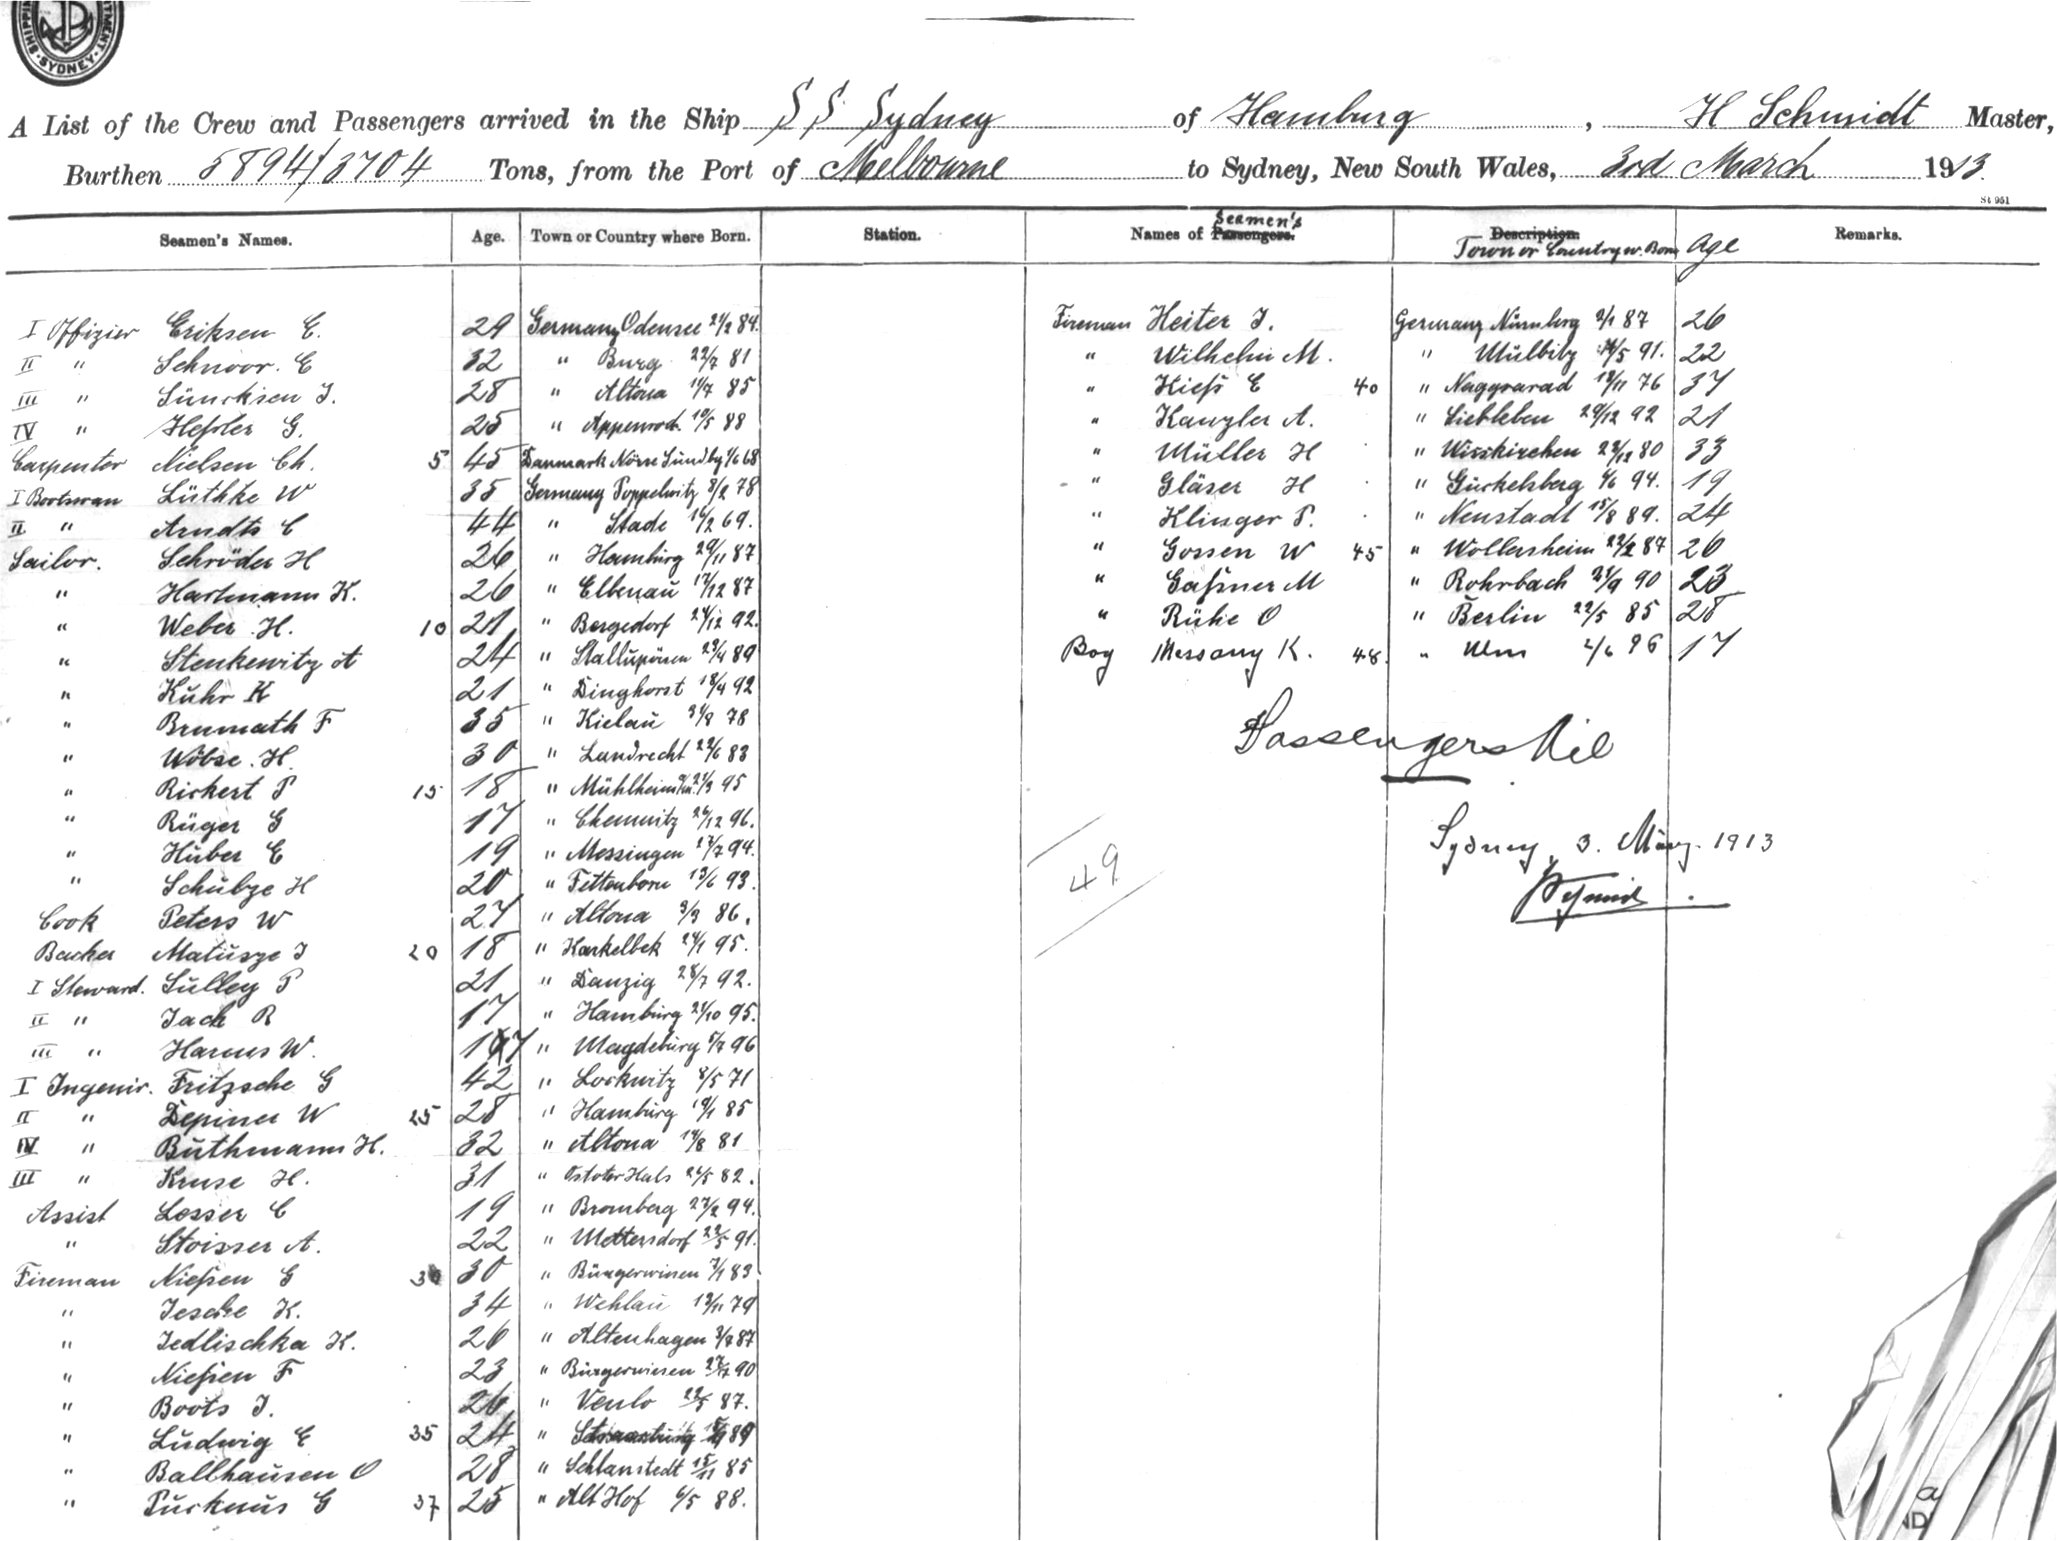 SHIPPING
SYDNEY
A List of the Crew and Passengers arrived in the Ship SS Sydney of Hamburg, H Schmidt Master,
Burthen 5894/3704 Tons, from the Port of Melbourne to Sydney, New South Wales, 3rd March 1913.
St 951
Seamen's Names. Age. Town or Country where Born. Station. Names of Passengers. Seamen's Description. Town or Country w. Born Age Remarks.
I Offizier Eriksen E. 29 Germany Odensee 21/2 84.
II " Schnoor. E 32 " Burg 22/7 81
III " Sünksen J. 28 " Altona 11/7 85
IV " Heßler G. 25 " Appenrod. 10/5 88
Carpenter Nielsen Ch. 5 45 Danmark Nörre Sundby 1/6 68
I Bootsman Lüthke W 35 Germany Poppelwitz 8/2 78
II " Arndts C 44 " Stade 16/2 69.
Sailor. Schröder H 26 " Hamburg 29/11 87
" Hartmann K. 26 " Elbenau 17/12 87
" Weber H. 10 21 " Bergedorf 24/12 92.
" Stenkewitz A 24 " Stallupönen 23/4 89
" Kuhr K 21 " Dinghorst 18/4 92
" Brumath F 35 " Kielau 31/8 78
" Wöbse. H. 30 " Landrecht 22/6 83
" Rickert P 15 18 " Mühlheim 21/3 95
" Rüger G 17 " Chemnitz 26/12 96.
" Huber E 19 " Messingen 27/7 94.
" Schulze H 20 " Tettenborn 13/6 93.
Cook Peters W 27 " Altona 3/3 86.
Backer Matusze J 20 18 " Karkelbek 24/1 95.
I Steward. Sulley P 21 " Danzig 28/7 92.
II " Jack R 17 " Hamburg 21/10 95.
III " Harms W. 17 " Magdeburg 5/7 96
I Ingenir. Fritzsche G 42 " Lockwitz 8/5 71
II " Depiner W 25 28 " Hamburg 19/1 85
IV " Buthmann H. 32 " Altona 14/8 81
III " Kruse H. 31 " Ostoter Hals 26/5 82.
Assist Losser C 19 " Bromberg 27/2 94.
" Stoisser A. 22 " Mettersdorf 22/5 91.
Fireman Nießen G 30 30 " Bürgerwiesen 7/1 83
" Jesche K. 34 " Wehlau 13/11 79
" Jedlischka K. 26 " Altenhagen 3/7 87
" Nießen F 23 " Bürgerwiesen 27/7 90
" Boots J. 26 " Venlo 22/5 87.
" Ludwig E 35 24 " Strassburg 89
" Ballhausen O 28 " Schlanstedt 15/11 85
" Purknus G 37 25 " Alt Hof 6/5 88.
Fireman Heiter J. Germany Nürnberg 2/1 87 26
" Wilhelm M. " Mülbitz 14/5 91. 22
" Kieß E 40 " Nagyvarad 13/11 76 37
" Kanzler A. " Siebleben 29/12 92 21
" Müller H " Wisskirchen 22/12 80 33
" Gläser H " Guckelsberg 4/6 94. 19
" Klinger P. " Neustadt 15/8 89. 24
" Gossen W 45 " Wollersheim 22/2 87 26
" Gaßner M " Rohrbach 21/9 90 23
" Rühe O " Berlin 22/5 85 28
Boy Messany K. 48. " Ulm 2/6 96 17
Passengers Nil
49
Sydney, 3. März. 1913
Schmidt